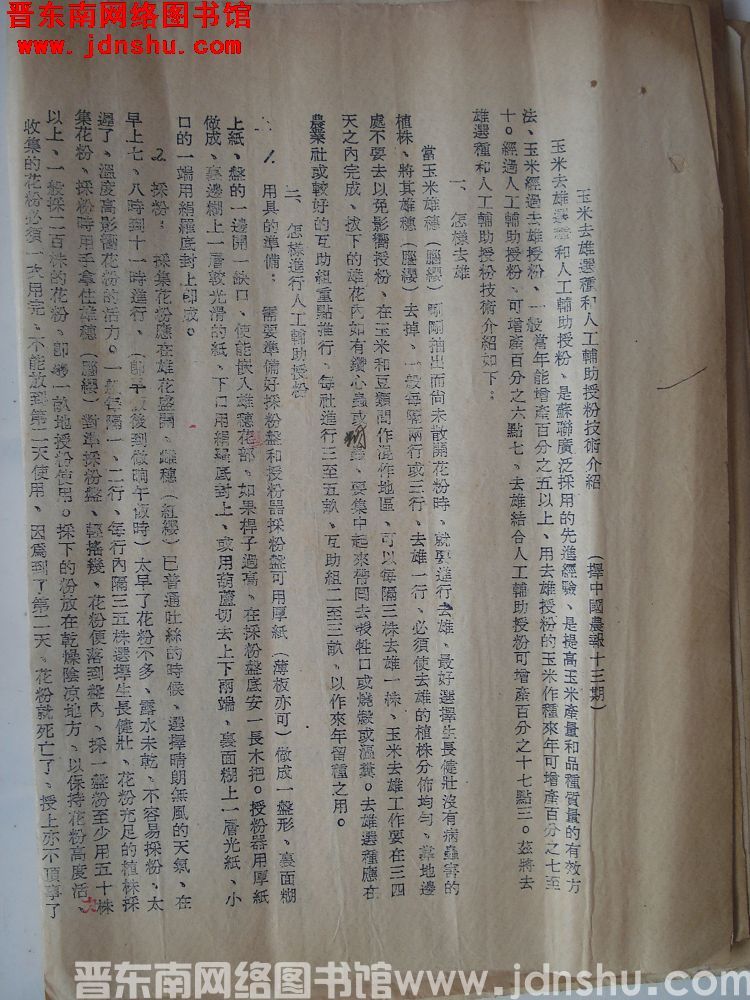 晋东南网络图书馆
www.jdnshu.com
玉米去雄選種和人工輔助授粉技術介紹　（擇中國農報十三期）
玉米去雄選種和人工輔助授粉、是蘇聯廣泛採用的先進經驗、是提高玉米產量和品種質量的有效方
法、玉米經過去雄授粉、一般當年能增產百分之五以上、用去雄授粉的玉米作種來年可增產百分之七至
十。經過人工輔助授粉、可增產百分之六點七、去雄結合人工輔助授粉可增產百分之十七點三。茲將去
雄選種和人工輔助授粉技術介紹如下：
一、怎樣去雄
當玉米雄穗（壓纓）剛剛抽出而尚未散開花粉時、就要進行去雄、最好選擇生長健壯沒有病蟲害的
植株、將其雄穗（壓纓）去掉、一般每隔兩行或三行、去雄一行、必須使去雄的植株分佈均勻、靠地邊
處不要去以免影響授粉、在玉米和豆類間作混作地區、可以每隔三株去雄一株、玉米去雄工作要在三四
天之內完成、拔下的雄花內如有鑽心蟲或、要集中起來帶回去喂牲口或燒毀或漚糞。去雄選種應在
農業社或較好的互助組重點推行、每社進行三至五畝、互助組二至三畝、以作來年留種之用。
二、怎樣進行人工輔助授粉
1、用具的準備：需要準備好採粉盤和授粉器採粉盤可用厚紙（薄板亦可）做成一盤形、裏面糊
上紙、盤的一邊開一缺口、使能嵌入雄穗花部、如果桿子過高、在採粉盤底安一長木把。授粉器用厚紙
做成、裏邊糊上一層較光滑的紙、下口用絹羅底封上、或用葫蘆切去上下兩端、裏面糊上一層光紙、小
口的一端用絹羅底封上卽成。
2、採粉：採集花粉應在雄花盛開、雌穗（紅纓）已普通吐絲的時候、選擇晴朗無風的天氣、在
早上七、八時到十一時進行、（卽早飯後到傲晌午飯時）太早了花粉不多、露水未乾、不容易採粉、太
遲了、溫度高影響花粉的活力。一般每隔一、二行、每行內隔三五株選擇生長健壯、花粉充足的植株採
集花粉、採粉時用手拿住雄穗（壓纓）對準採粉盤、輕搖幾、花粉便落到盤內、採一盤粉至少用五十株
以上、一般採二百株的花粉、卽夠一畝地授粉使用。採下的粉放在乾燥陰涼地方、以保持花粉高度活力
收集的花粉必須一次用完、不能放到第二天使用、因爲到了第二天、花粉就死亡了、授上亦不頂事了
晋东南网络图书馆www.jdnshu.com